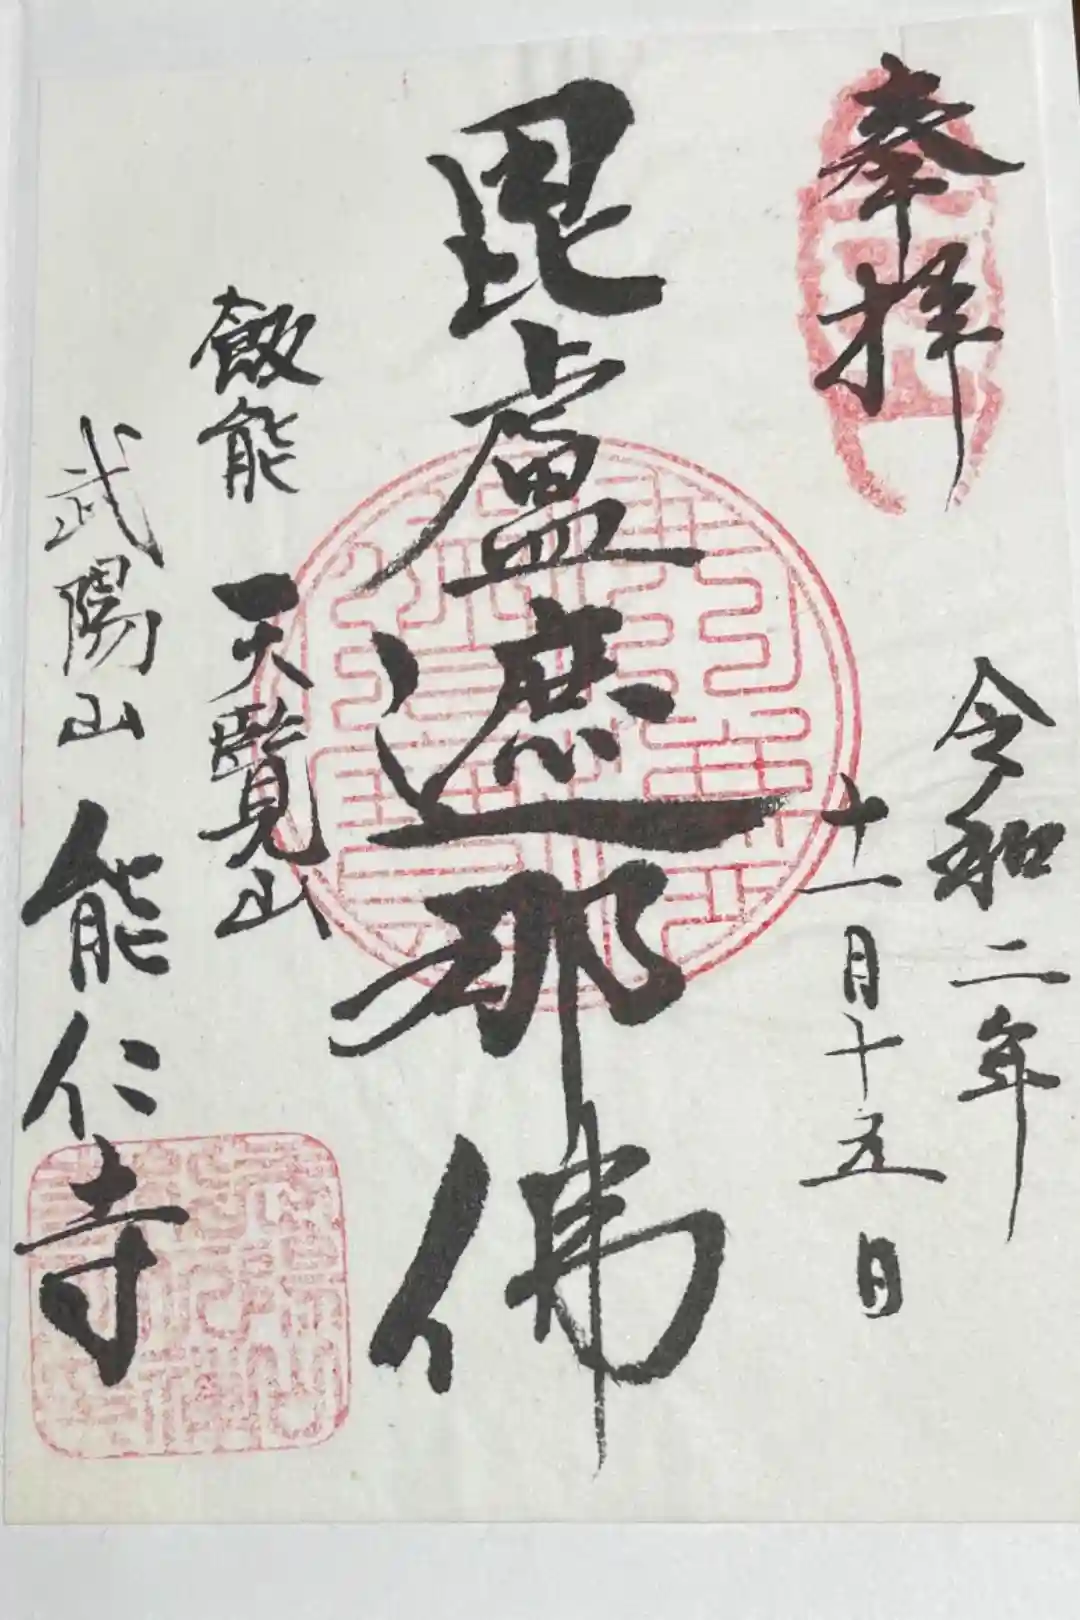 奉拝
令和二年
十一月十五日
毘盧遮那佛
飯能 天覧山
武陽山 能仁寺